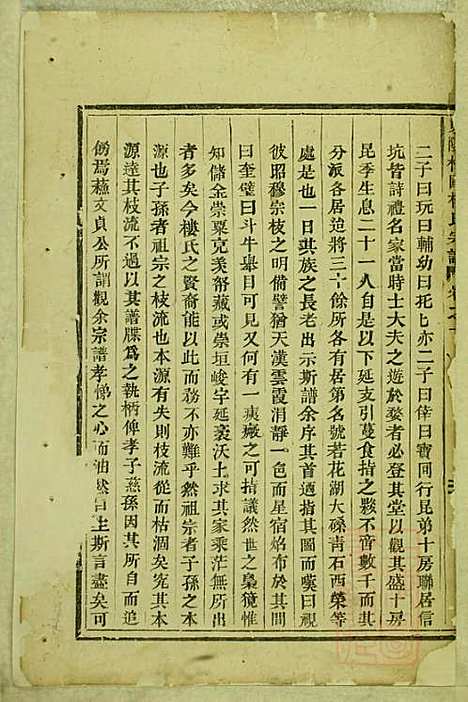 二子曰玩曰輔幼曰托匕亦二子曰倖曰寶同行昆弟十房聯居信
坑皆詩禮名家當時士大夫之遊於婺者必登其堂以觀其盛十房
昆季生息二十一人自是以下延支引蔓食指之夥不啻數千而其
分派各居迨將三十餘所各有居第名號若花湖大磉靑石西榮等
處是也一日其族之長老出示斯譜余序其首迺指其圖而嘆曰視
彼昭穆宗枝之明備譬猶天漢雲霞消靜一色而星宿焰布於其間
曰奎璧曰斗牛舉目可列無一痍瘢之可指議然世之梟獍惟
知儲金崇粟克美帑藏或崇垣峻宇延袤沃土求其家乘茫無所出
者多矣今樓氏之賢裔能以此而務不亦難乎然祖宗者子孫之本
源也子孫者祖宗之枝流也本源有失則枝流從而枯涸矣究其本
源達其枝流不過以其譜牒爲之執柄俾孝子慈孫因其所自而追
傍焉蘓文貞公所謂觀余宗譜孝悌之心而油然自生斯言盡矣可